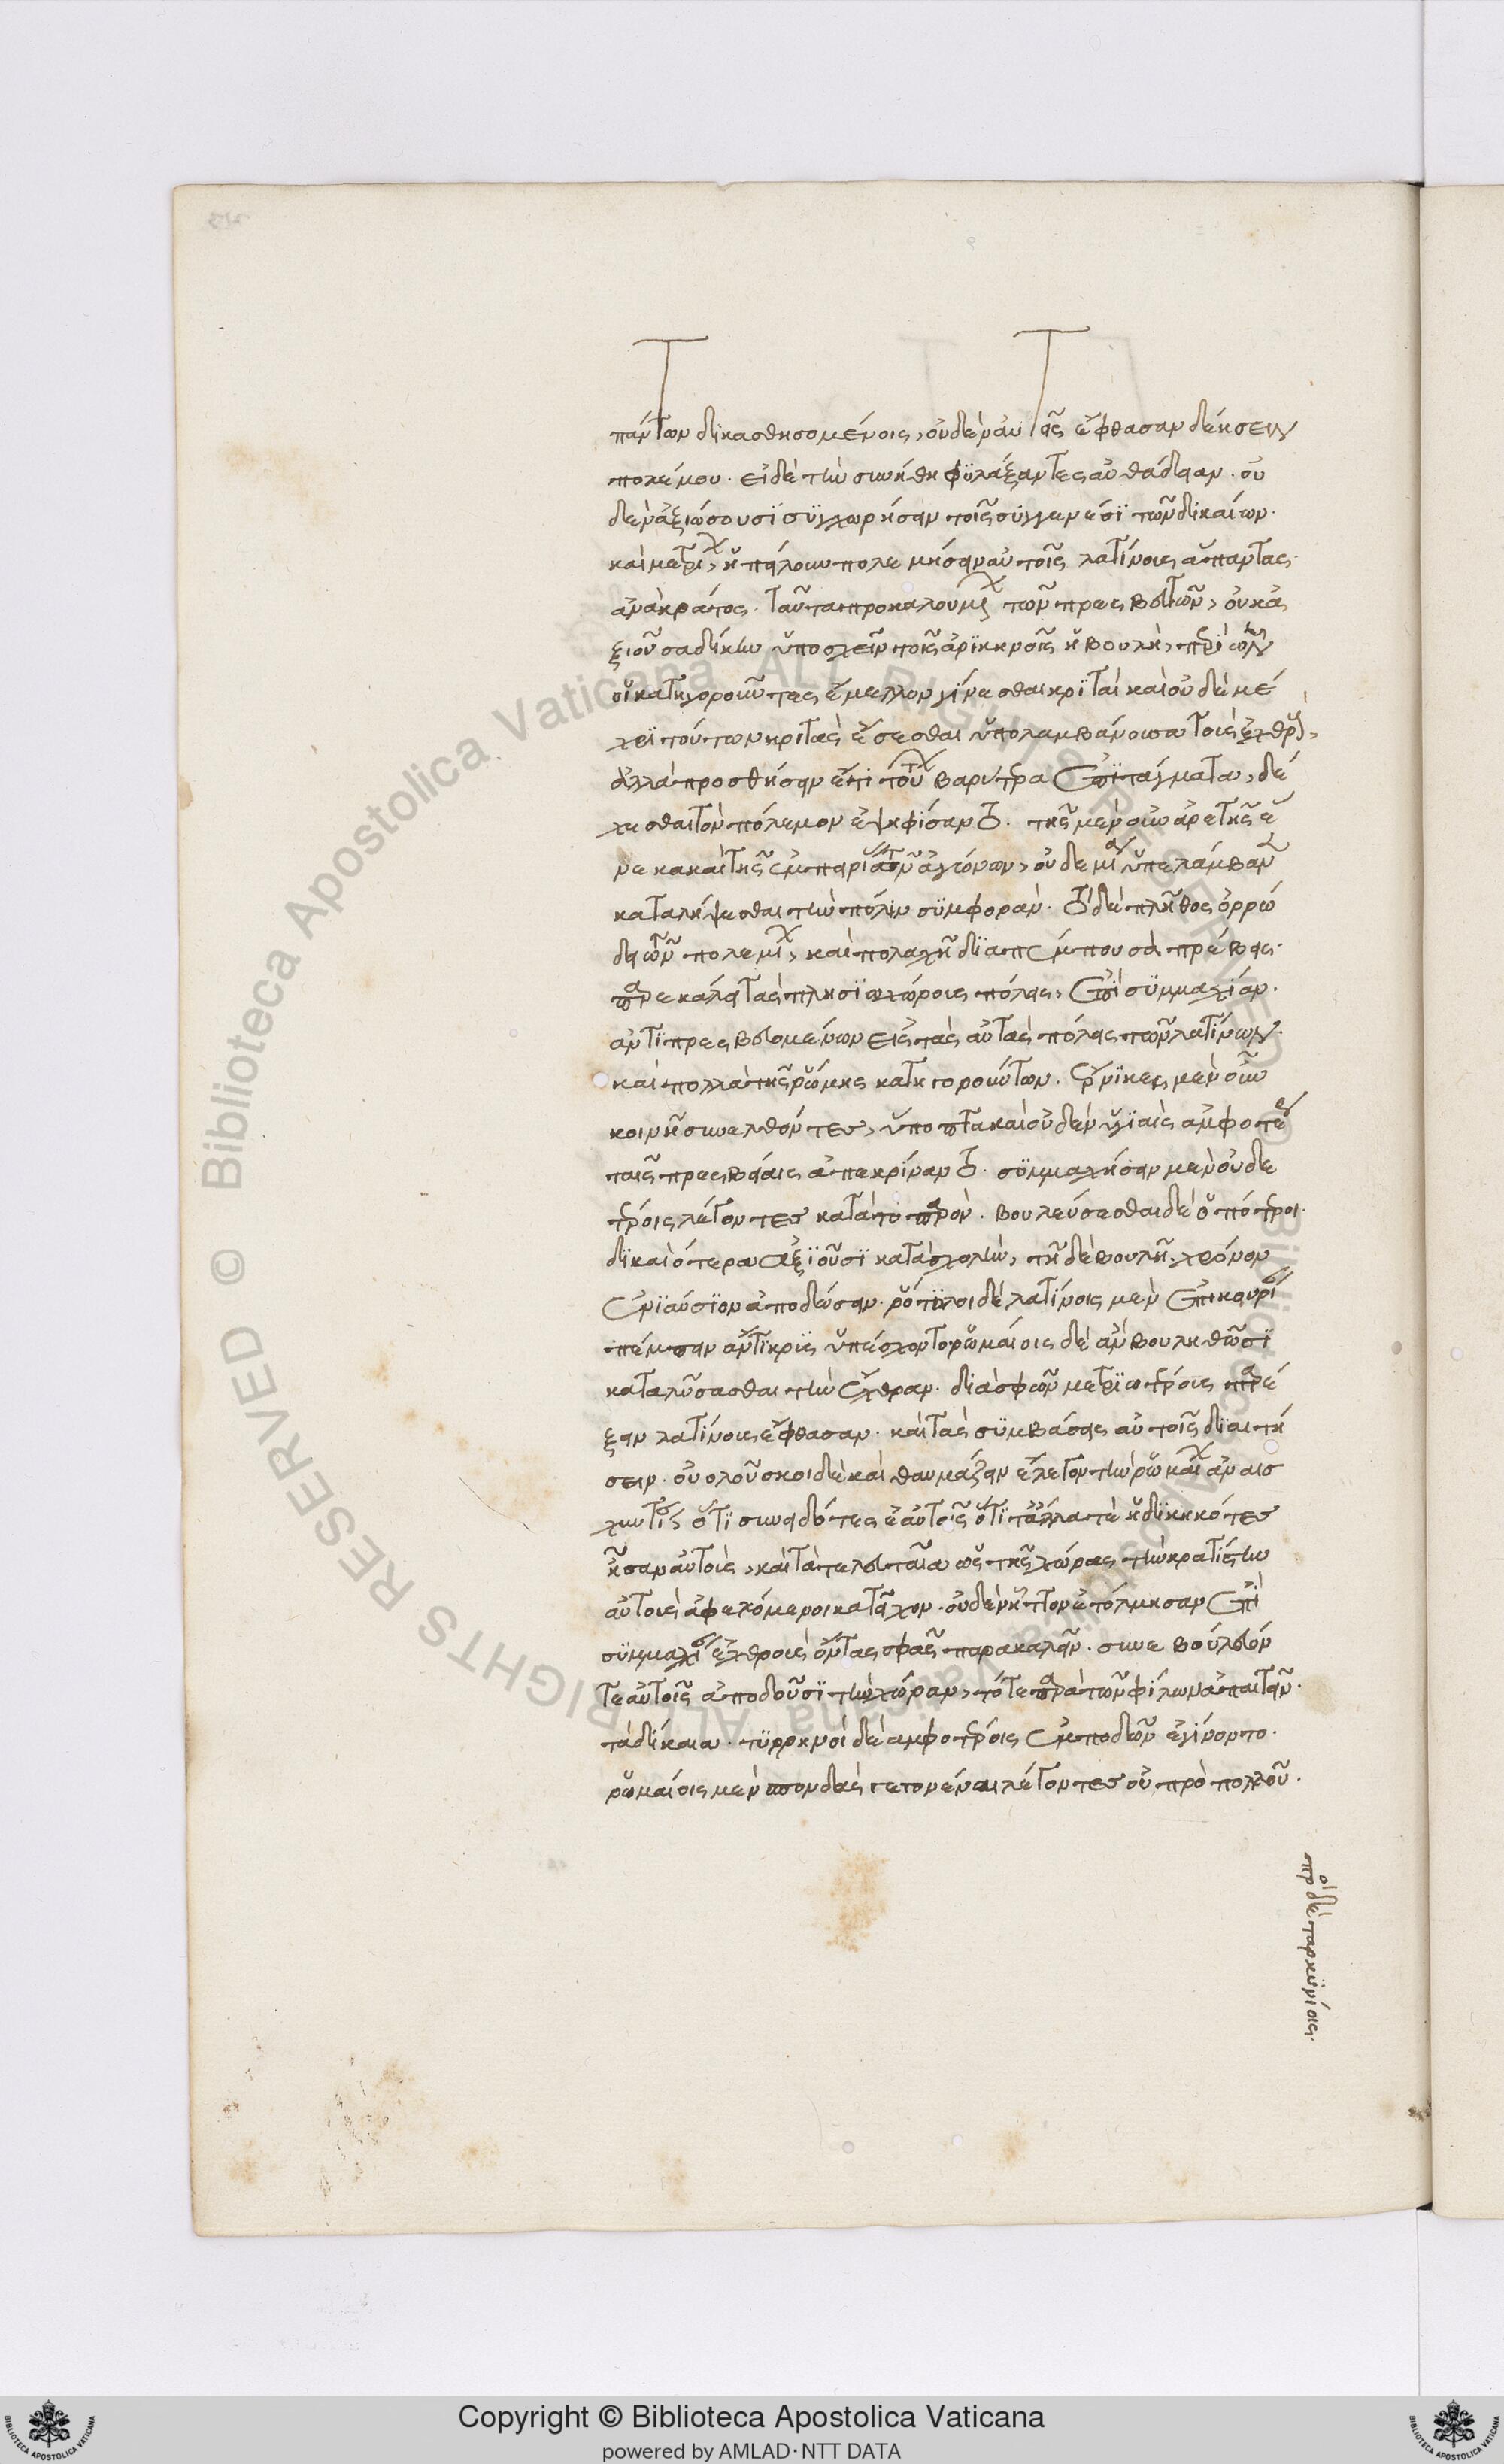 πάντων δικασθησομένοις, οὐδὲν αὐταῖς ἔφθασαν δεήσειν
πολέμου. εἰ δὲ τὴν συνήθη φυλάξαντες αὐθάδειαν. οὐ
δὲν ἀξιώσουσι συγχωρῆσαι τοῖς συγγενέσι τῶν δικαίων.
καὶ μετρίων, ἠπείλουν πολεμήσειν αὐτοῖς λατίνους ἅπαντας.
ἀνὰ κράτος. ταῦτα προκαλουμένων τῶν πρεσβευτῶν, οὐκ ἀ
ξιοῦσα δίκην ὑποσχεῖν τοῖς ἀρικηνοῖς ἡ βουλὴ, περὶ ὧν
οἱ κατηγοροῦντες ἔμελλον γίνεσθαι κριταὶ καὶ οὐδὲ μέ
χρι τούτων κριτὰς ἔσεσθαι ὑπολαμβάνουσα τοὺς ἐχθροὺς,
ἀλλὰ προσθήσειν ἔτι τούτων βαρύτερα ἐπιτάγματα, δέ
χεσθαι τὸν πόλεμον ἐψηφίσαντο. τῆς μὲν οὖν ἀρετῆς ἕ
νεκα καὶ τῆς ἐμπειρίας τῶν ἀγώνων, οὐδεμίαν ὑπελάμβανε
καταλήψεσθαι τὴν πόλιν συμφοράν. τὸ δὲ πλῆθος ὀρρω
δεῖ τῶν πολεμίων, καὶ πολλαχῇ διαπέμπουσα πρέσβεις.
παρεκάλει τὰς πλησιοχώρους πόλεις, ἐπὶ συμμαχίαν.
ἀντιπρεσβευομένων εἰς τὰς αὐτὰς πόλεις τῶν λατίνων.
καὶ πολλὰ τῆς ῥώμης κατηγορούντων. ἕρνικες μὲν οὖν
κοινῇ συνελθόντες, ὕποπτα καὶ οὐδὲν ὑγιαὶς ἀμφοτέραις
ταῖς πρεσβείαις ἀπεκρίναντο. συμμαχήσειν μὲν οὐδε
τέροις λέγοντες κατὰ τὸ παρὸν. βουλεύσεσθαι δὲ ὁπότεροι.
δικαιότερα ἀξιοῦσι κατὰ σχολὴν, τῇ δὲ βουλῇ. χρόνον
ἐνιαύσιον ἀποδώσειν. ῥότυλοι δὲ λατίνοις μὲν ἐπικουρίας
πέμψειν ἄντικρυς ὑπέσχοντο ῥωμαίοις δὲ ἂν βουληθῶσι
καταλύσασθαι τὴν ἔχθραν. διὰ σφῶν μετριωτέρους παρέ
ξειν λατίνους ἔφθασαν. καὶ τὰς συμβάσεις αὐτοῖς διαιτή
σειν. οὐολοῦσκοι δὲ καὶ θαυμάζειν ἔλεγον τὴν ῥωμαίων ἀναισ
χυντίας ὅτι συνειδότες ἑαυτοῖς ὅτι τἆλλα τὲ ἠδικηκότες
ἦσαν αὐτοὺς, καὶ τὰ τελευταῖα ὡς τῆς χώρας τὴν κρατίστην
αὐτοὺς ἀφελόμενοι κατεῖχον. οὐδὲν ἧττον ἐτόλμησαν ἐπὶ
συμμαχίας ἐχθροὺς ὄντας σφᾶς παρακαλεῖν. συνεβούλευόν
τε αὐτοῖς ἀποδοῦσι τὴν χώραν, τότε παρὰ τῶν φίλων ἀπαιτεῖν.
τὰ δίκαια. τυρρηνοὶ δὲ ἀμφοτέροις ἐμποδὼν ἐγίνοντο.
ῥωμαίοις μὲν σπονδὰς γεγονέναι λέγοντες οὐ πρὸ πολλοῦ.
πρὸς δὲ ταρκυνίους.